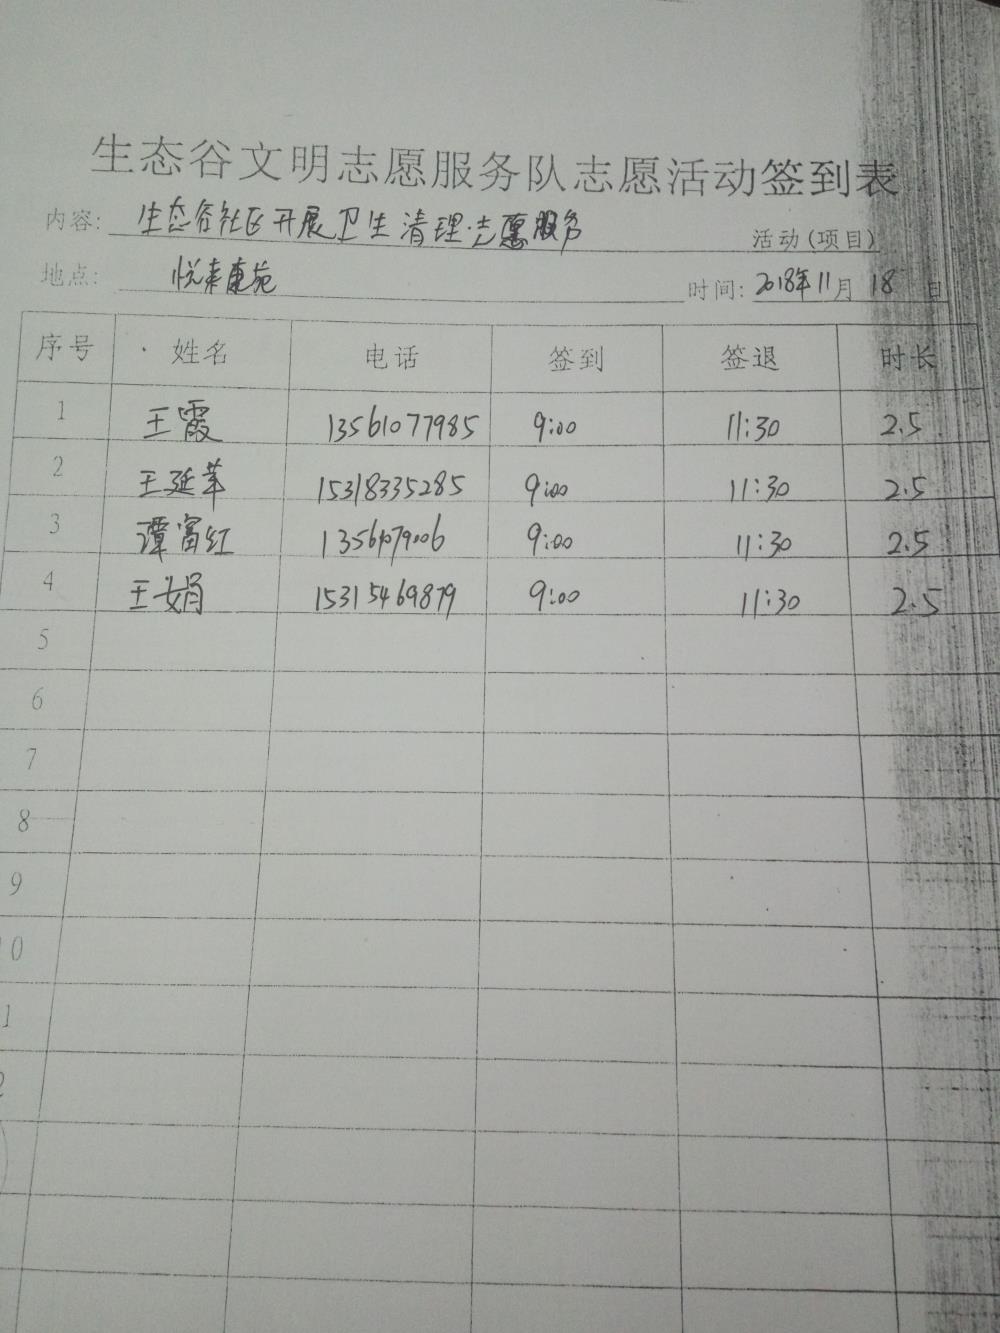 生态谷文明志愿服务队志愿活动签到表
内容: 生态谷社区开展卫生清理志愿服务 活动(项目)
地点: 悦来康苑 时间: 2018年11月18日
序号 姓名 电话 签到 签退 时长
1 王霞 13561077985 9:00 11:30 2.5
2 王延苹 15318335285 9:00 11:30 2.5
3 谭富红 9:00 11:30 2.5
4 王娟 15315469879 9:00 11:30 2.5
5
6
7
8
9
0
1
2